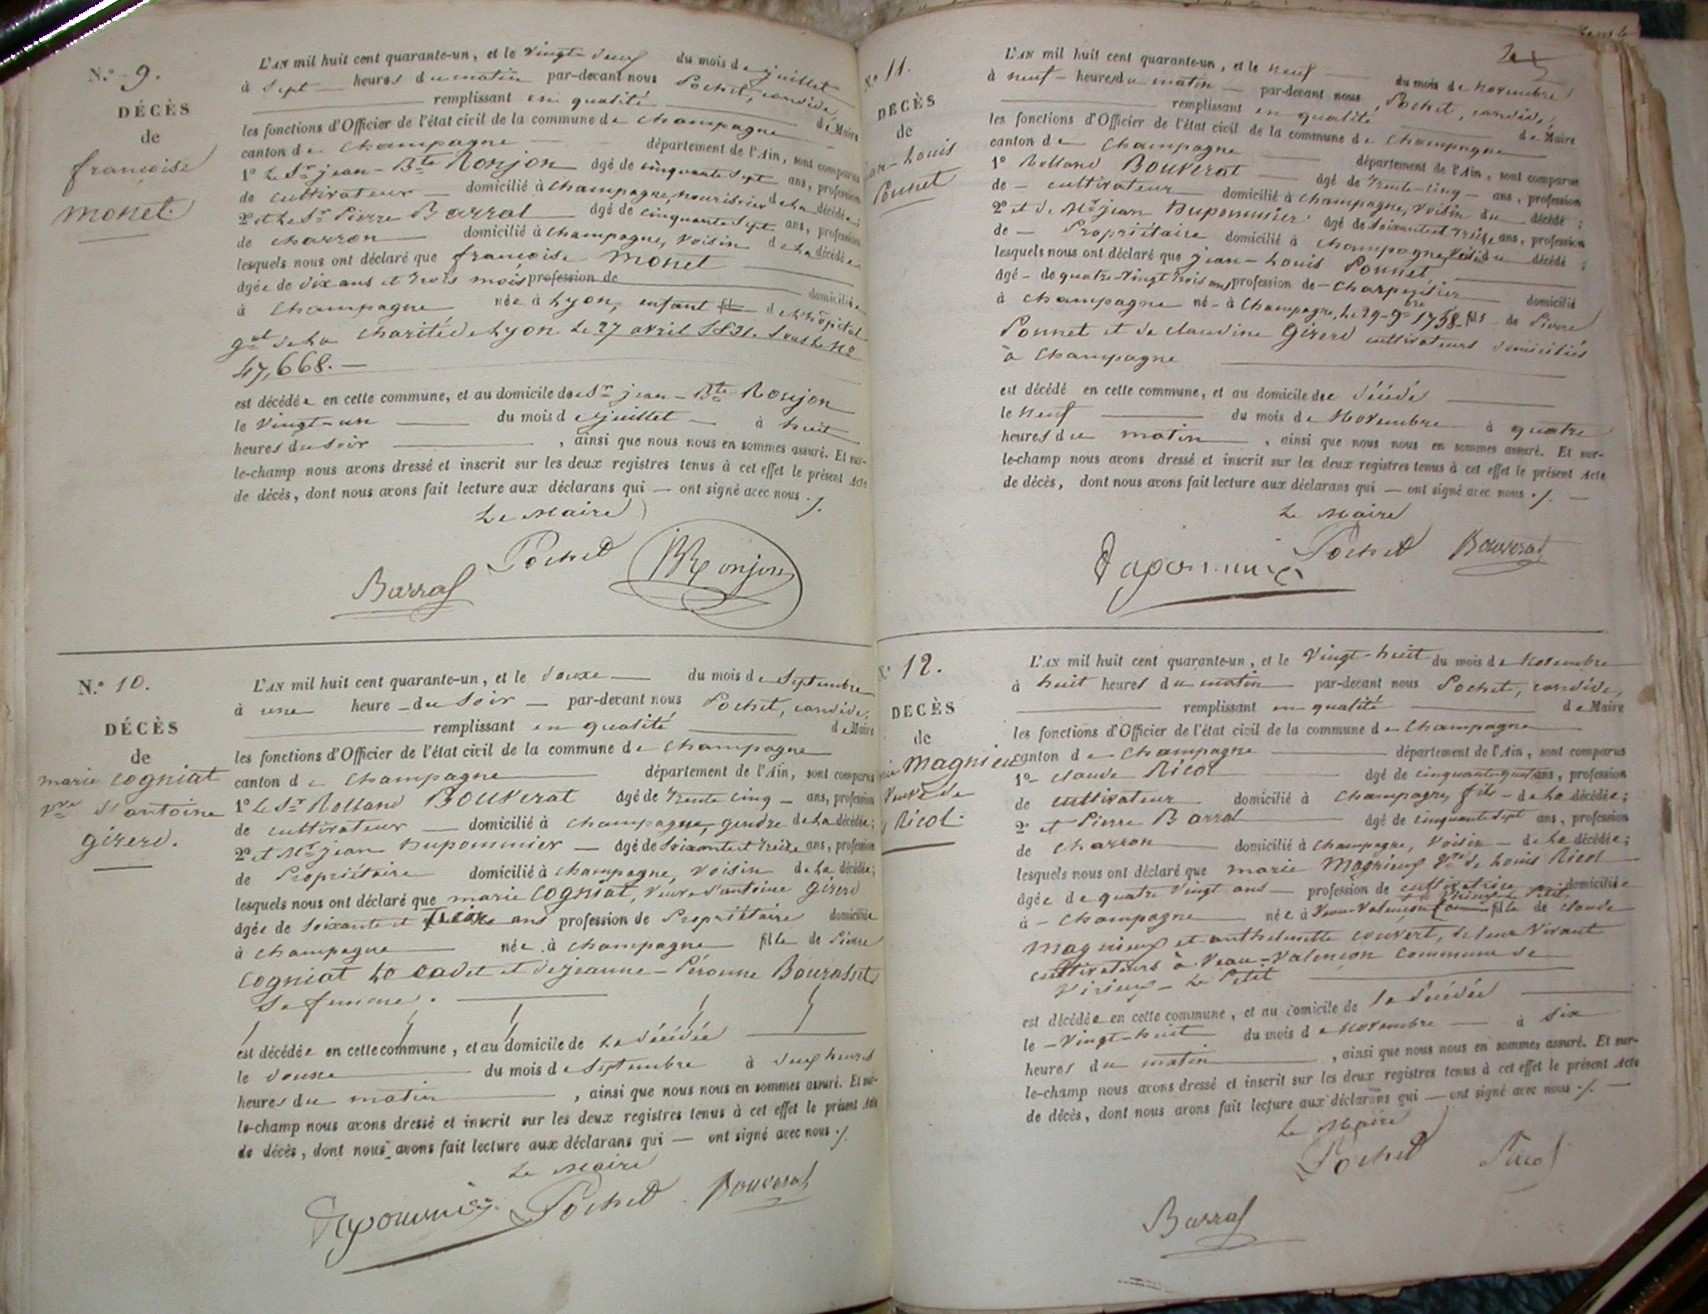 N.º 9.
DÉCÈS
de
françoise
monet.
L'AN mil huit cent quarante-un, et le vingt-deux du mois de juillet
à sept heures du matin par-devant nous Pochet, candide,
remplissant en qualité de Maire
les fonctions d'Officier de l'état civil de la commune de Champagne
canton de Champagne département de l'Ain, sont comparus
1º le Sr jean-Bte Ronjon âgé de cinquante sept ans, profession
de cultivateur domicilié à Champagne, nourricier de la décédée;
2º et le Sr Pierre Barral âgé de cinquante sept ans, profession
de charron domicilié à Champagne, voisin de la décédée
lesquels nous ont déclaré que françoise monet
âgée de dix ans et trois mois profession de domiciliée
à Champagne née à Lyon, enfant de l'hôpital
gal de la Charité de Lyon le 27 avril 1831. sous le No
47,668.
est décédée en cette commune, et au domicile du Sr jean-Bte Ronjon
le vingt-un du mois de juillet à huit
heures du soir, ainsi que nous nous en sommes assuré. Et sur-
le-champ nous avons dressé et inscrit sur les deux registres tenus à cet effet le présent Acte
de décès, dont nous avons fait lecture aux déclarans qui ont signé avec nous ./.
Le Maire
Barral Pochet BRonjon
N.º 10.
DÉCÈS
de
marie Cogniat
vve d'antoine
girerd.
L'AN mil huit cent quarante-un, et le douze du mois de Septembre
à une heure du soir par-devant nous Pochet, candide,
remplissant en qualité de Maire
les fonctions d'Officier de l'état civil de la commune de Champagne
canton de Champagne département de l'Ain, sont comparus
1º le Sr Rolland BOUVERAT âgé de trente cinq ans, profession
de cultivateur domicilié à Champagne, gendre de la décédée;
2º et Mr jean Duponnier âgé de soixante et treize ans, profession
de Propriétaire domicilié à Champagne, voisin de la décédée;
lesquels nous ont déclaré que marie Cogniat, veuve d'antoine girerd
âgée de soixante et treize ans profession de Propriétaire domiciliée
à Champagne née à Champagne fille de Pierre
Cogniat le cadet et de jeanne-Péronne Bourasset
sa femme.
est décédée en cette commune, et au domicile de la décédée
le douze du mois de Septembre à deux heures
heures du matin, ainsi que nous nous en sommes assuré. Et sur-
le-champ nous avons dressé et inscrit sur les deux registres tenus à cet effet le présent Acte
de décès, dont nous avons fait lecture aux déclarans qui ont signé avec nous ./.
Le Maire
Duponnier Pochet Bouverat
N.º 11.
DÉCÈS
de
jean-Louis
Ponnet
L'AN mil huit cent quarante-un, et le neuf du mois de novembre
à neuf heures du matin par-devant nous Pochet, candide,
remplissant en qualité de Maire
les fonctions d'Officier de l'état civil de la commune de Champagne
canton de Champagne département de l'Ain, sont comparus
1º Rolland BOUVERAT âgé de trente-cinq ans, profession
de cultivateur domicilié à Champagne, voisin du décédé;
2º et de Mr jean Duponnier âgé de soixante et treize ans, profession
de Propriétaire domicilié à Champagne, voisin du décédé;
lesquels nous ont déclaré que jean-Louis Ponnet
âgé de quatre-vingt trois ans profession de charpentier domicilié
à Champagne né à Champagne, le 29 9bre 1758 fils de Pierre
Ponnet et de claudine girerd cultivateurs domiciliés
à Champagne
est décédé en cette commune, et au domicile du décédé
le neuf du mois de Novembre à quatre
heures du matin, ainsi que nous nous en sommes assuré. Et sur-
le-champ nous avons dressé et inscrit sur les deux registres tenus à cet effet le présent Acte
de décès, dont nous avons fait lecture aux déclarans qui ont signé avec nous ./.
Le Maire
Duponnier Pochet Bouverat
Nº 12.
DÉCÈS
de
Magnieux
veuve de
Ricol.
L'AN mil huit cent quarante-un, et le vingt-huit du mois de Novembre
à huit heures du matin par-devant nous Pochet, candide,
remplissant en qualité de Maire
les fonctions d'Officier de l'état civil de la commune de Champagne
canton de Champagne département de l'Ain, sont comparus
1º claude Ricol âgé de cinquante ans, profession
de cultivateur domicilié à Champagne, fils de la décédée;
2º et Pierre Barral âgé de cinquante sept ans, profession
de charron domicilié à Champagne, voisin de la décédée;
lesquels nous ont déclaré que marie Magnieux Vve de Louis Ricol
âgée de quatre vingt ans profession de cultivatrice domiciliée
à Champagne née à Veau-Valençon fille de claude
Magnieux et anthelmette Couvert, de leur vivant
cultivateurs à Veau-Valençon commune de
Virieux-le Petit
est décédée en cette commune, et au domicile de la décédée
le vingt-huit du mois de Novembre à six
heures du matin, ainsi que nous nous en sommes assuré. Et sur-
le-champ nous avons dressé et inscrit sur les deux registres tenus à cet effet le présent Acte
de décès, dont nous avons fait lecture aux déclarans qui ont signé avec nous ./.
Le Maire
Pochet Ricol
Barral